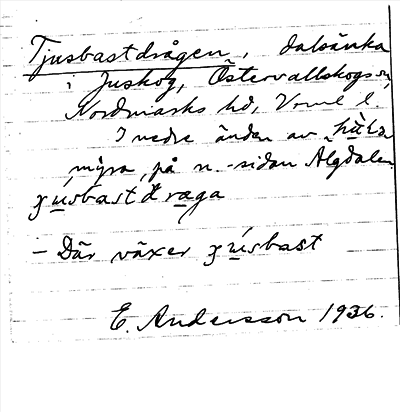 Tjusbastdrågen, dalsänka
i Juskog, Östervallskogs sn,
Nordmarks hd, Vrml l.
I nedre änden av
myra, på n.-sidan Älgdalen
– Där växer
E. Andersson 1936.